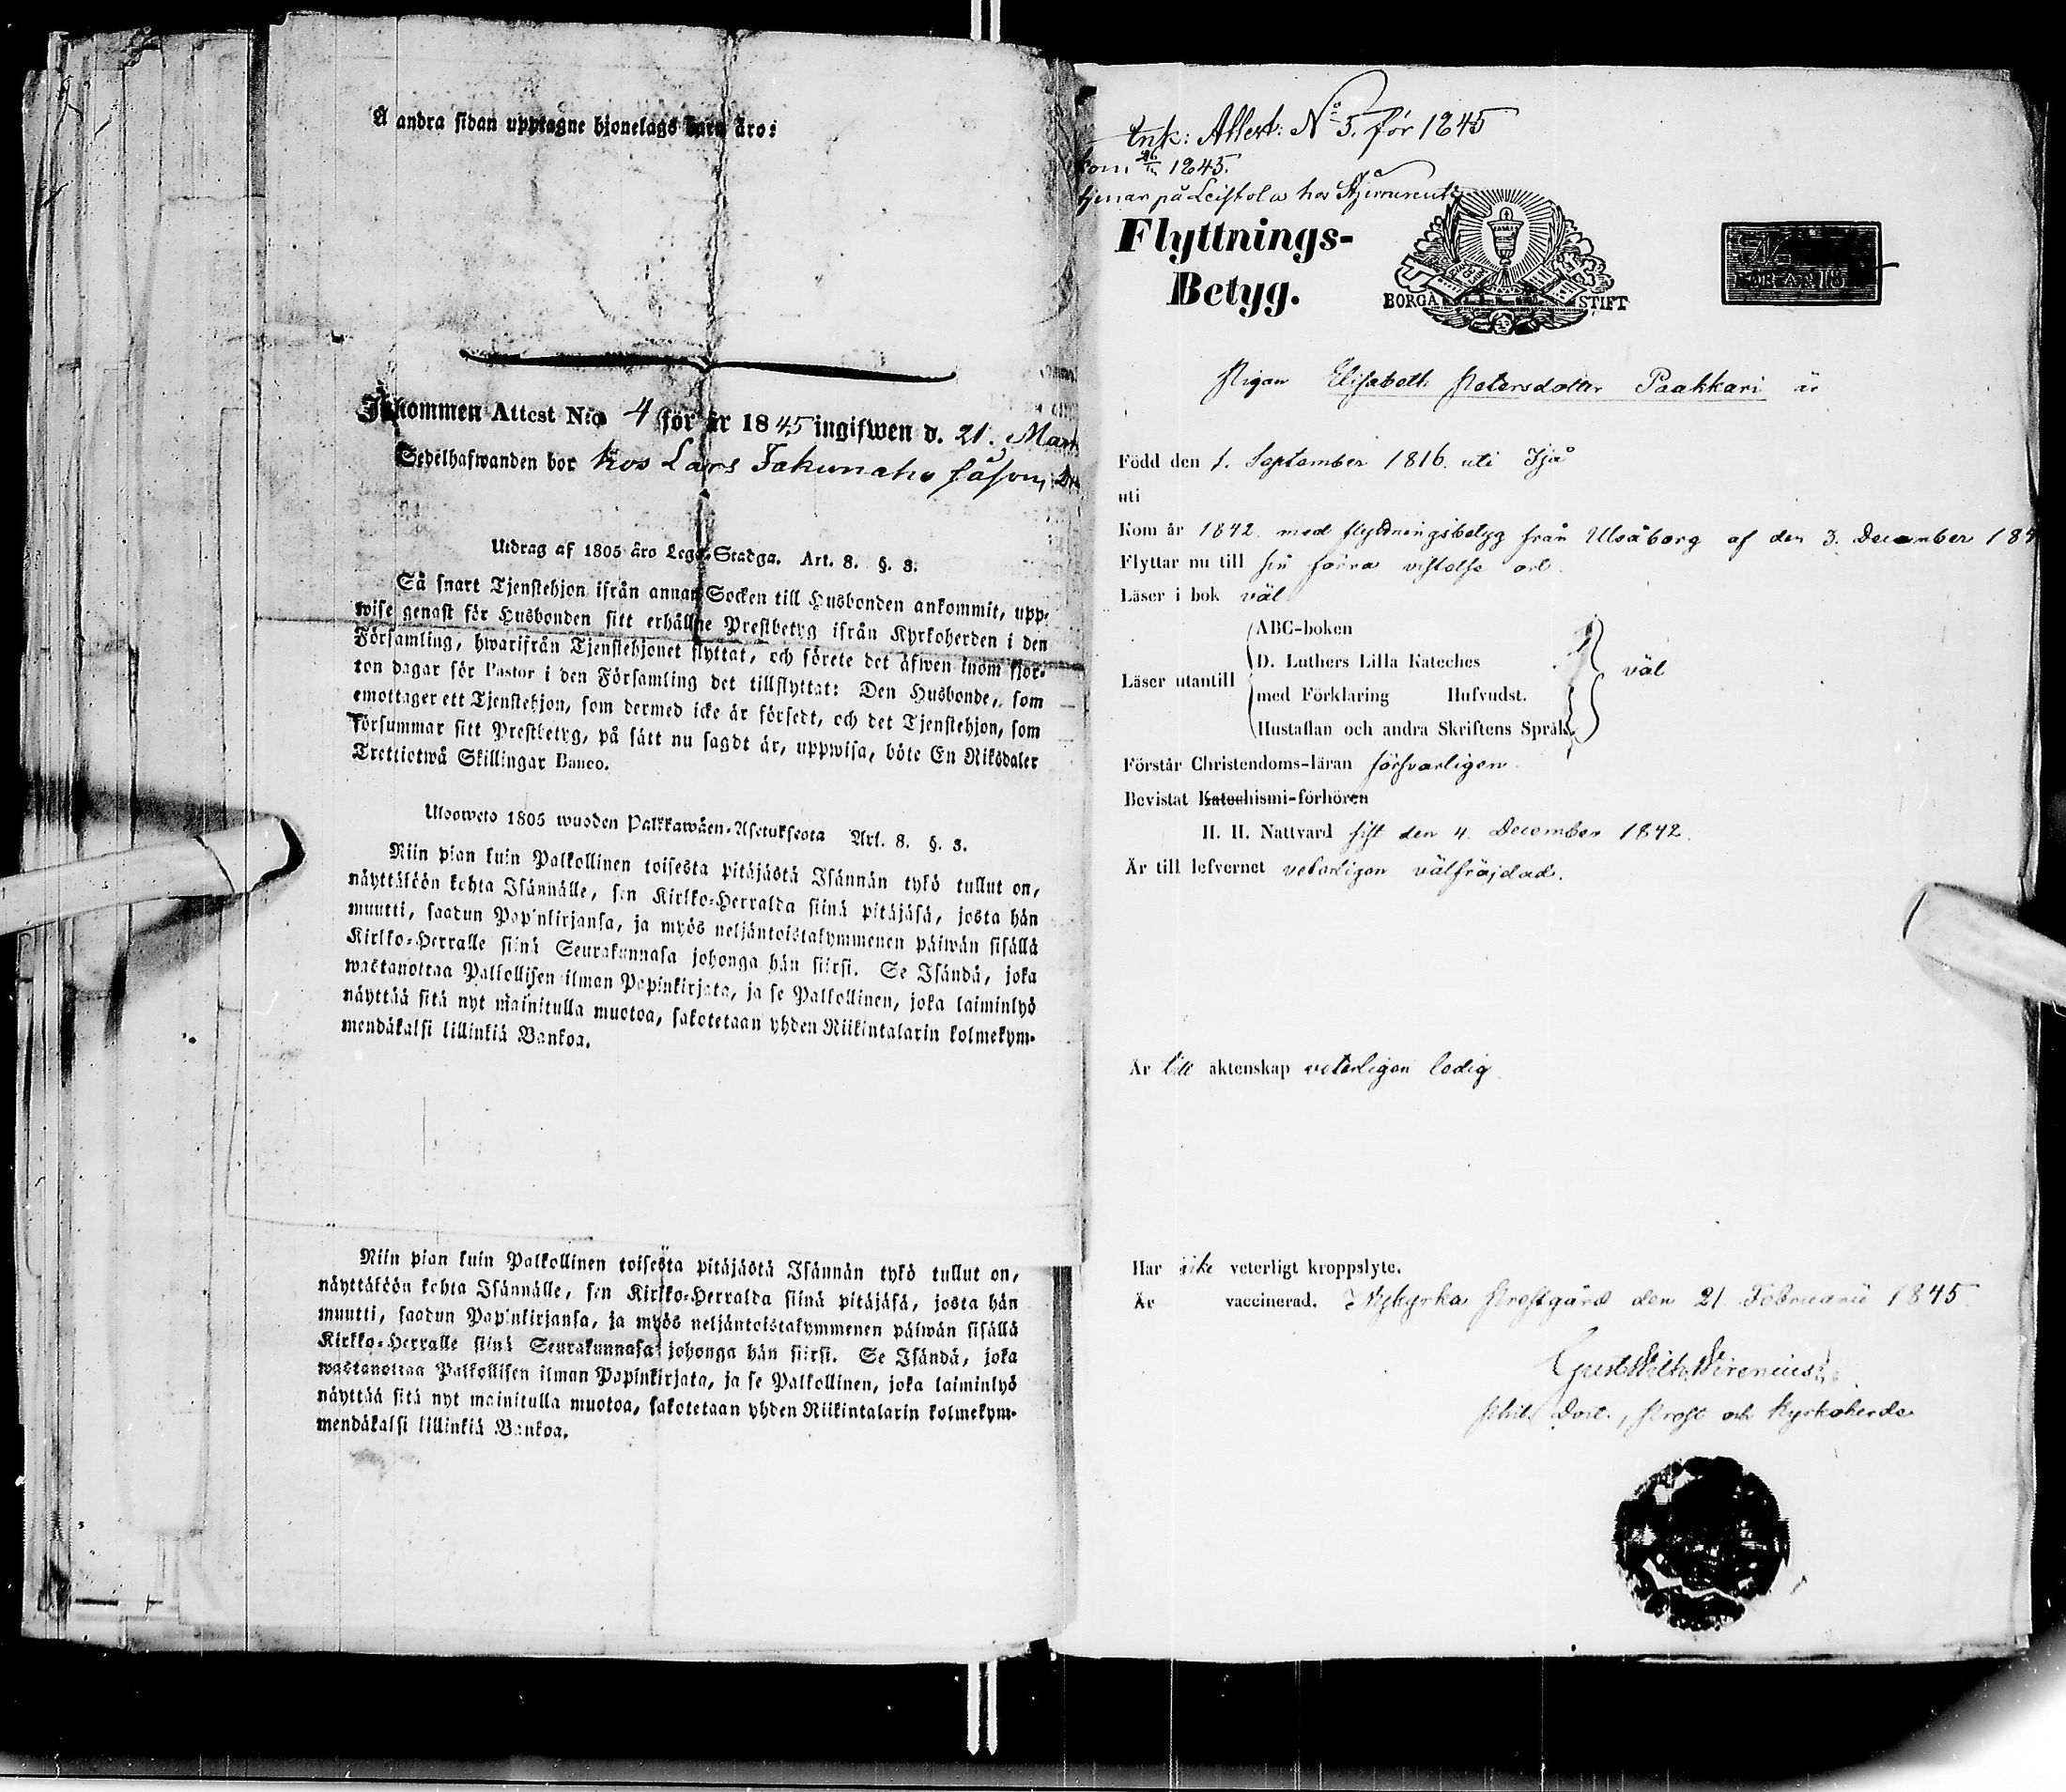 Å andra sidan upptagne hjonelags barn äro:
Inkommen Attest N:o 4 för år 1845 ingifwen d. 21. Mars
Sedelhafwanden bor hos Lars
Utdrag af 1805 äro Lego-Stadga. Art. 8. §. 3.
Så snart Tjenstehjon ifrån annan Socken till Husbonden ankommit, upp-
wise genast för Husbonden sitt erhållne Prestbetyg ifrån Kyrkoherden i den
Församling, hwarifrån Tjenstehjonet flyttat, och förete det äfwen inom fjor-
ton dagar för Pastor i den Församling det tillflyttat: Den Husbonde, som
emottager ett Tjenstehjon, som dermed icke är försedt, och det Tjenstehjon, som
försummar sitt Prestbetyg, på sätt nu sagdt är, uppwisa, böte En Riksdaler
Trettiotwå Skillingar Banco.
Ulosweto 1805 wuoden Palkkawäen-Asetuksesta Art. 8. §. 3.
Niin pian kuin Palkollinen toisesta pitäjästä Isännän tykö tullut on,
näyttäköön kohta Isännälle, sen Kirkko-Herralda siinä pitäjäsä, josta hän
muutti, saadun Papinkirjansa, ja myös neljäntoistakymmenen päiwän sisällä
Kirkko-Herralle siinä Seurakunnasa johonga hän siirsi. Se Isändä, joka
wastanottaa Palkollisen ilman Papinkirjata, ja se Palkollinen, joka laiminlyö
näyttää sitä nyt mainitulla muotoa, sakotetaan yhden Riikintalarin kolmekym-
mendäkaksi killinkiä Bankoa.
Niin pian kuin Palkollinen toisesta pitäjästä Isännän tykö tullut on,
näyttäköön kohta Isännälle, sen Kirkko-Herralda siinä pitäjäsä, josta hän
muutti, saadun Papinkirjansa, ja myös neljäntoistakymmenen päiwän sisällä
Kirkko-Herralle siinä Seurakunnasa johonga hän siirsi. Se Isändä, joka
wastanottaa Palkollisen ilman Papinkirjata, ja se Palkollinen, joka laiminlyö
näyttää sitä nyt mainitulla muotoa, sakotetaan yhden Riikintalarin kolmekym-
mendäkaksi killinkiä Bankoa.
Ink: Attest: No 5. för 1845
kom 1845.
tjenar på Leistola hos
Flyttnings-
Betyg.
BORGÅ STIFT
Pigan Elisabeth Petersdotter Paakkari är
Född den 1. September 1816. uti Ijå
uti
Kom år 1842. med flyttningsbetyg från Uleåborg af den 3. December 184
Flyttar nu till sin förra vistelse ort.
Läser i bok väl
Läser utantill
ABC-boken
D. Luthers Lilla Kateches
med Förklaring Hufvudst.
Hustaflan och andra Skriftens Språk
väl
Förstår Christendoms-läran försvarligen.
Bevistat Katechismi-förhören
H. H. Nattvard sist den 4. December 1842.
Är till lefvernet veterligen välfräjdad.
Är till äktenskap veterligen ledig.
Har icke veterligt kroppslyte.
Är vaccinerad. Nykyrka Prestgård den 21 Februarii 1845.
Gust. Wilh. Sirenius
Phil. Doct., Prost och Kyrkoherde